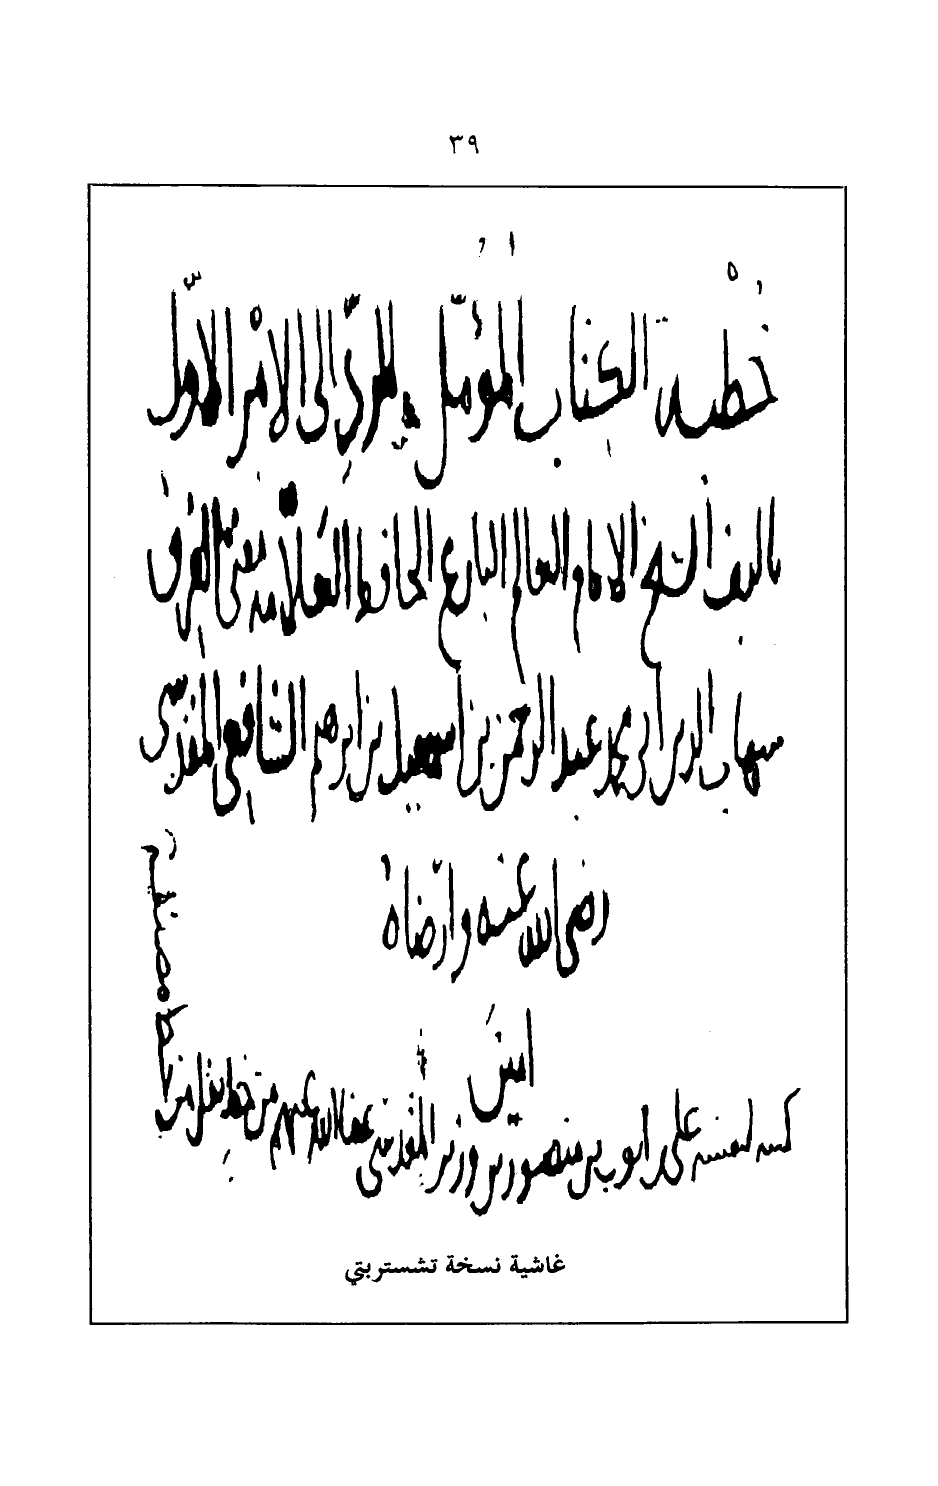 ٣٩
خُطْبة الكتاب المؤمّل للردّ إلى الأمْر الأوّل
تاليف الشيخ الإمام العالم البارع الحافظ العَلّامة مفتي الفِرَق
شهاب الدين أبي محمد عبد الرحمن بن اسمعيل بن ابرهيم الشافعي المقدسي
رضي الله عنه وارضاهُ
امين
كتبه لنفسه علي بن ايوب بن منصور بن وزير المقدسي عفا الله عنهم من خط نقل من
خط مصنفه
غاشية نسخة تشستربتي